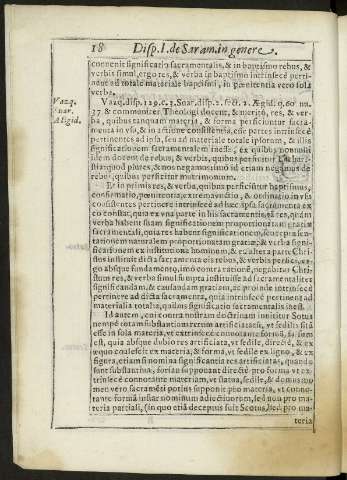 18 Disp. I. de Saram. in genere.
conuenit significatio sacramentalis, & in baptismo rebus, &
verbis simul, ergo res, & verba in baptismo intrinsecè perti-
nent ad totale materiale baptismi, in pœnitentia vero sola
verba.
Vazq.
Suar.
Ægid.
Vazq. disp. 129. c. 3. Soar. disp. 2. sect. 2. Ægid. q. 60 nu.
37 & communiter Theologi docent, & meritò, res, & ver-
ba, quibus tanquam materia, & forma perficiuntur sacra-
menta in vsu, & in actione consistentia, esse partes intrinsecè
pertinentes ad ipsa, seu ad materiale totale ipsorum, & illis
significationem sacramentalem inesse, ex quibus nonnulli
idem docent de rebus, & verbis, quibus perficitur Eucha-
ristia quod plures, & nos negamus: imò id etiam negamus de
rebus, quibus perficitur matrimonium.
Et in primis res, & verba, quibus perficiuntur baptismus,
confirmatio, pœnitentia, extrema vnctio, & ordinatio in vsu
consistentes pertinere intrinsecè ad hæc ipsa sacramenta ex
eo constat, quia ex vna parte in his sacramentis, tã res, quàm
verba habent suam significationem proportionatam gratiæ
sacramentali, quia res habent significationem, seu repræsen-
tationem naturalem proportionatam gratiæ; & verba signi-
ficationem ex institutione hominum, & ex altera parte Chri-
stus instituit dicta sacramenta eis rebus, & verbis perfici, er-
go absque fundamento, imò contra rationẽ, negabitur Chri-
stum res, & verba simul sumpta instituisse ad sacramentaliter
significandam, & causandam gratiam, ac proinde intrinsecè
pertinere ad dicta sacramenta, quia intrinsecè pertinent ad
materialia totalia, quibus significatio sacramentalis inest.
Id autem, cui contra nostram doctrinam innititur Sotus
nempè totam substantiam rerum artificiatarũ, vt sedilis sitã
esse in sola materia, vt extrinsecè connotante formã, falsum
est, quia absque dubio res artificiata, vt sedile, directè, & ex
æquo coalescit ex materia, & forma, vt sedile ex ligno, & ex
figura, etiam si nomina significantia res artificiatas, quando
sunt substantiua, soleant supponere directè pro forma vt ex-
trinsecè connotante materiam, vt statua, sedile, & domus: no-
men vero sacramẽti potius supponit pro materia, vt conno-
tante formã instar nominum adiectiuorum, sed non pro ma-
teria partiali, (in quo etiã deceptus fuit Scotus,) sed pro ma-
teria